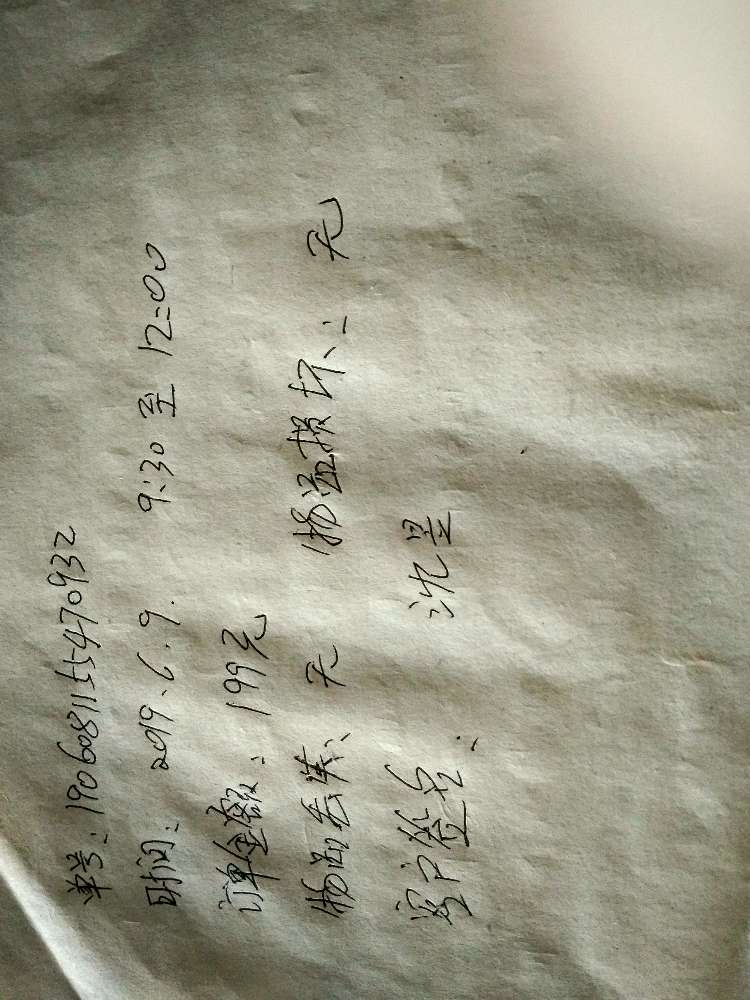 单号：190608115470932
时间：2019.6.9. 9:30至12:00
订单金额：199元
物品丢失：无 物品损坏：无
客户签名：沈昱